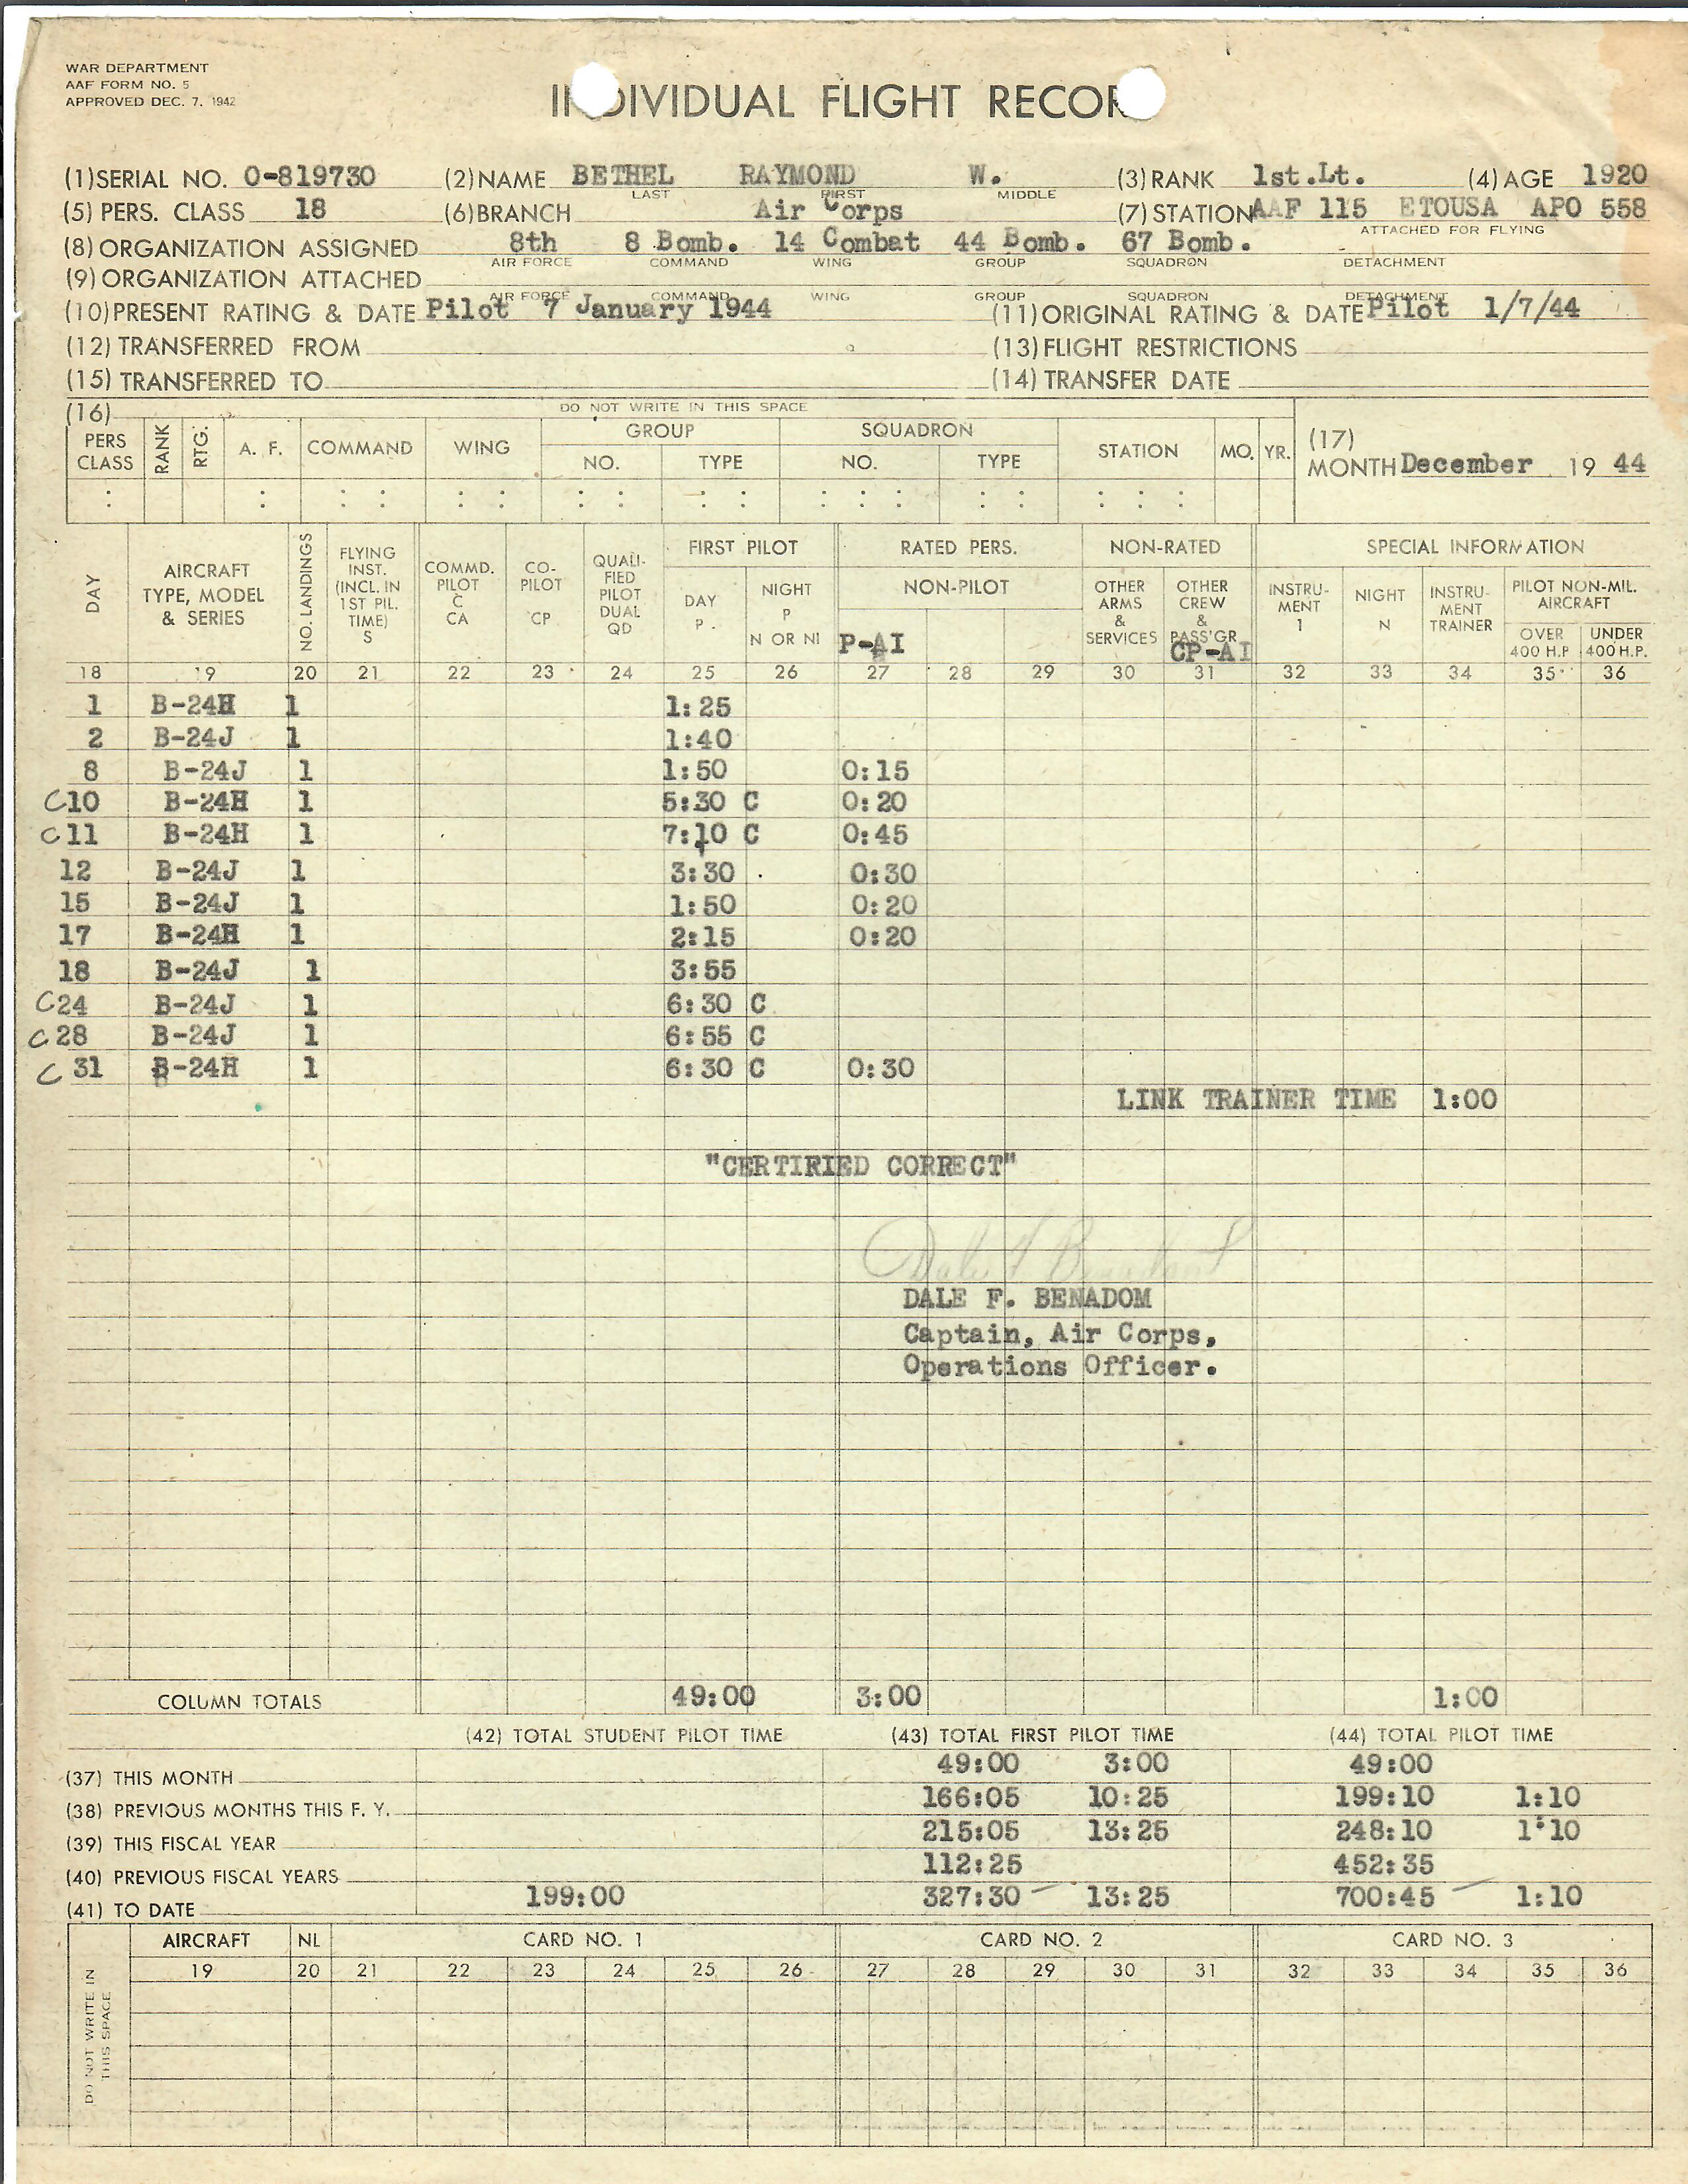 WAR DEPARTMENT
AAF FORM NO. 5
APPROVED DEC. 7. 1942
INDIVIDUAL FLIGHT RECOR
(1) SERIAL NO. 0-819730 (2) NAME BETHEL RAYMOND W. (3) RANK 1st.Lt. (4) AGE 1920
LAST FIRST MIDDLE
(5) PERS. CLASS 18 (6) BRANCH Air Corps (7) STATION AAF 115 ETOUSA APO 558
ATTACHED FOR FLYING
(8) ORGANIZATION ASSIGNED 8th 8 Bomb. 14 Combat 44 Bomb. 67 Bomb.
AIR FORCE COMMAND WING GROUP SQUADRON DETACHMENT
(9) ORGANIZATION ATTACHED
AIR FORCE COMMAND WING GROUP SQUADRON DETACHMENT
(10) PRESENT RATING & DATE Pilot 7 January 1944 (11) ORIGINAL RATING & DATE Pilot 1/7/44
(12) TRANSFERRED FROM (13) FLIGHT RESTRICTIONS
(15) TRANSFERRED TO (14) TRANSFER DATE
(16) DO NOT WRITE IN THIS SPACE
PERS CLASS RANK RTG. A. F. COMMAND WING GROUP NO. TYPE SQUADRON NO. TYPE STATION MO. YR.
(17)
MONTH December 19 44
DAY AIRCRAFT TYPE, MODEL & SERIES NO. LANDINGS FLYING INST. (INCL. IN 1ST PIL. TIME) S COMMD. PILOT C CA CO-PILOT CP QUALI-FIED PILOT DUAL QD FIRST PILOT DAY P NIGHT P N OR NI RATED PERS. NON-PILOT P-AI NON-RATED OTHER ARMS & SERVICES OTHER CREW & PASS'GR CP-AI SPECIAL INFORMATION INSTRU-MENT 1 NIGHT N INSTRU-MENT TRAINER PILOT NON-MIL. AIRCRAFT OVER 400 H.P UNDER 400 H.P.
18 19 20 21 22 23 24 25 26 27 28 29 30 31 32 33 34 35 36
1 B-24H 1 1:25
2 B-24J 1 1:40
8 B-24J 1 1:50 0:15
C10 B-24H 1 5:30 C 0:20
C11 B-24H 1 7:10 C 0:45
12 B-24J 1 3:30 0:30
15 B-24J 1 1:50 0:20
17 B-24H 1 2:15 0:20
18 B-24J 1 3:55
C24 B-24J 1 6:30 C
C28 B-24J 1 6:55 C
C 31 B-24H 1 6:30 C 0:30
LINK TRAINER TIME 1:00
"CERTIRIED CORRECT"
DALE F. BENADOM
Captain, Air Corps,
Operations Officer.
COLUMN TOTALS 49:00 3:00 1:00
(42) TOTAL STUDENT PILOT TIME (43) TOTAL FIRST PILOT TIME (44) TOTAL PILOT TIME
(37) THIS MONTH 49:00 3:00 49:00
(38) PREVIOUS MONTHS THIS F. Y. 166:05 10:25 199:10 1:10
(39) THIS FISCAL YEAR 215:05 13:25 248:10 1:10
(40) PREVIOUS FISCAL YEARS 112:25 452:35
(41) TO DATE 199:00 327:30 13:25 700:45 1:10
DO NOT WRITE IN THIS SPACE
AIRCRAFT NL CARD NO. 1 CARD NO. 2 CARD NO. 3
19 20 21 22 23 24 25 26 27 28 29 30 31 32 33 34 35 36